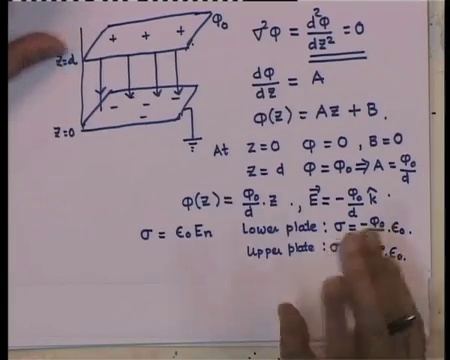 φ₀
∇²φ = d²φ/dz² = 0
+ + +
z=d
dφ/dz = A
φ(z) = Az + B.
− − − − −
z=0
At z=0 φ=0, B=0
z=d φ=φ₀ ⇒ A = φ₀/d
φ(z) = φ₀/d · z , E⃗ = −φ₀/d k̂.
σ = ε₀En Lower plate : σ = −φ₀ .ε₀.
Upper plate : σ .ε₀.